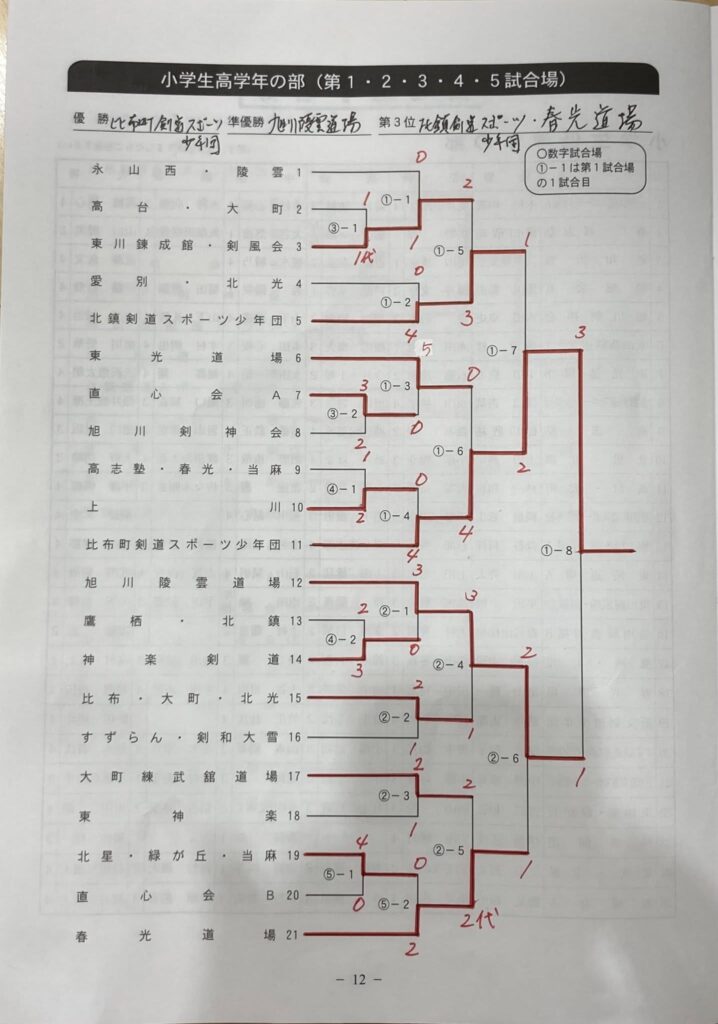 小学生高学年の部（第1・2・3・4・5試合場）
優勝 比布町剣道スポーツ少年団 準優勝 旭川陵雲道場 第3位 北鎮剣道スポーツ少年団・春光道場
○数字試合場
①-1は第1試合場
の1試合目
永山西・陵雲 1
0
①-1
2
高台・大町 2
1
③-1
東川錬成館・剣風会 3
1代
1
①-5
1
愛別・北光 4
0
①-2
北鎮剣道スポーツ少年団 5
4
3
3
東光道場 6
5
①-7
直心会A 7
3
①-3
0
③-2
旭川剣神会 8
2
0
①-6
2
高志塾・春光・当麻 9
1
0
④-1
上川 10
2
①-4
4
比布町剣道スポーツ少年団 11
4
①-8
旭川陵雲道場 12
3
3
鷹栖・北鎮 13
2
②-1
④-2
神楽剣道 14
3
0
②-4
2
比布・大町・北光 15
2
②-2
すずらん・剣和大雪 16
1
1
②-6
1
大町練武舘道場 17
2
②-3
2
東神楽 18
1
②-5
北星・緑が丘・当麻 19
4
0
1
⑤-1
直心会B 20
0
⑤-2
2代
春光道場 21
2
- 12 -